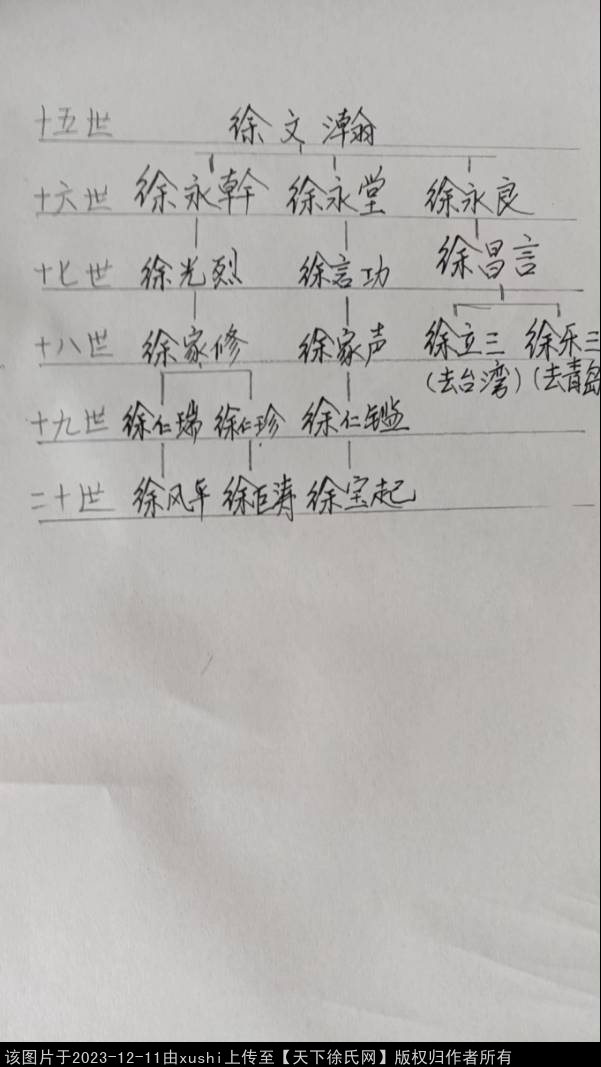 十五世 徐文瀚
十六世 徐永幹 徐永堂 徐永良
十七世 徐光烈 徐言功 徐昌言
十八世 徐家修 徐家声 徐立三 徐乐三
(去台湾) (去青岛
十九世 徐仁瑞 徐仁珍 徐仁鑑
二十世 徐风 徐巨涛 徐宝起
该图片于2023-12-11由xushi上传至【天下徐氏网】版权归作者所有